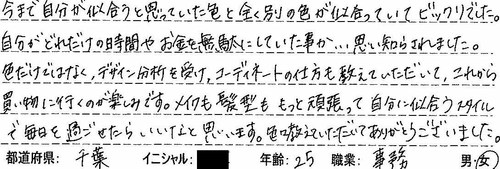 今まで自分が似合うと思っていた色と全く別の色が似合っていてビックリでした。
自分がどれだけの時間やお金を無駄にしていた事か…思い知らされました。
色だけではなく、デザイン分析を受け、コーディネートの仕方も教えていただいて、これから
買い物に行くのが楽しみです。メイクも髪型ももっと頑張って自分に似合うスタイル
で毎日を過ごせたらいいなと思います。色々教えていただいてありがとうございました。
都道府県: 千葉 イニシャル: 年齢: 25 職業: 事務 男・女